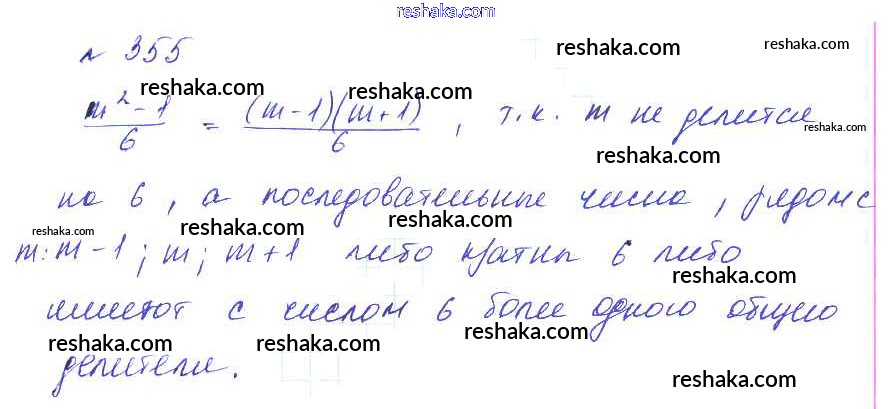 reshaka.com
№ 355
reshaka.com
reshaka.com
reshaka.com
reshaka.com
(m² - 1)/6 = ((m - 1)(m + 1))/6 , т.к. m не делится
reshaka.com
reshaka.com
на 6 , а последовательные числа , рядом с
reshaka.com
reshaka.com
reshaka.com
m: m - 1 ; m ; m + 1 либо кратны 6 либо
reshaka.com
имеют с числом 6 более одного общего
reshaka.com
reshaka.com
reshaka.com
делителя.
reshaka.com